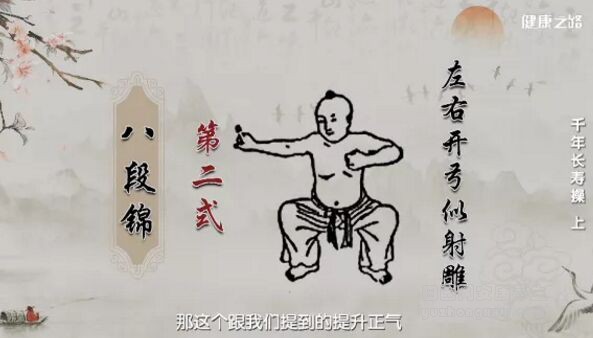 健康之路
左右开弓似射雕
千年长寿操 上
第二式
八段锦
那这个跟我们提到的提升正气